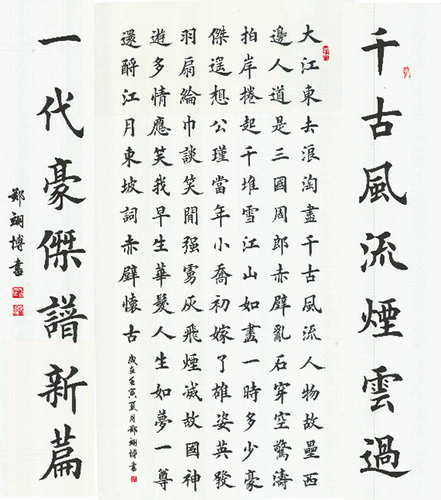 千古風流煙雲過
大江東去浪淘盡千古風流人物故壘西
邊人道是三國周郎赤壁亂石穿空驚濤
拍岸捲起千堆雪江山如畫一時多少豪
傑遥想公瑾當年小喬初嫁了雄姿英發
羽扇綸巾談笑間强虜灰飛煙滅故國神
遊多情應笑我早生華髮人生如夢一尊
還酹江月東坡詞赤壁懷古
歲在壬寅夏月鄭翊博書
一代豪傑譜新篇
鄭翊博書